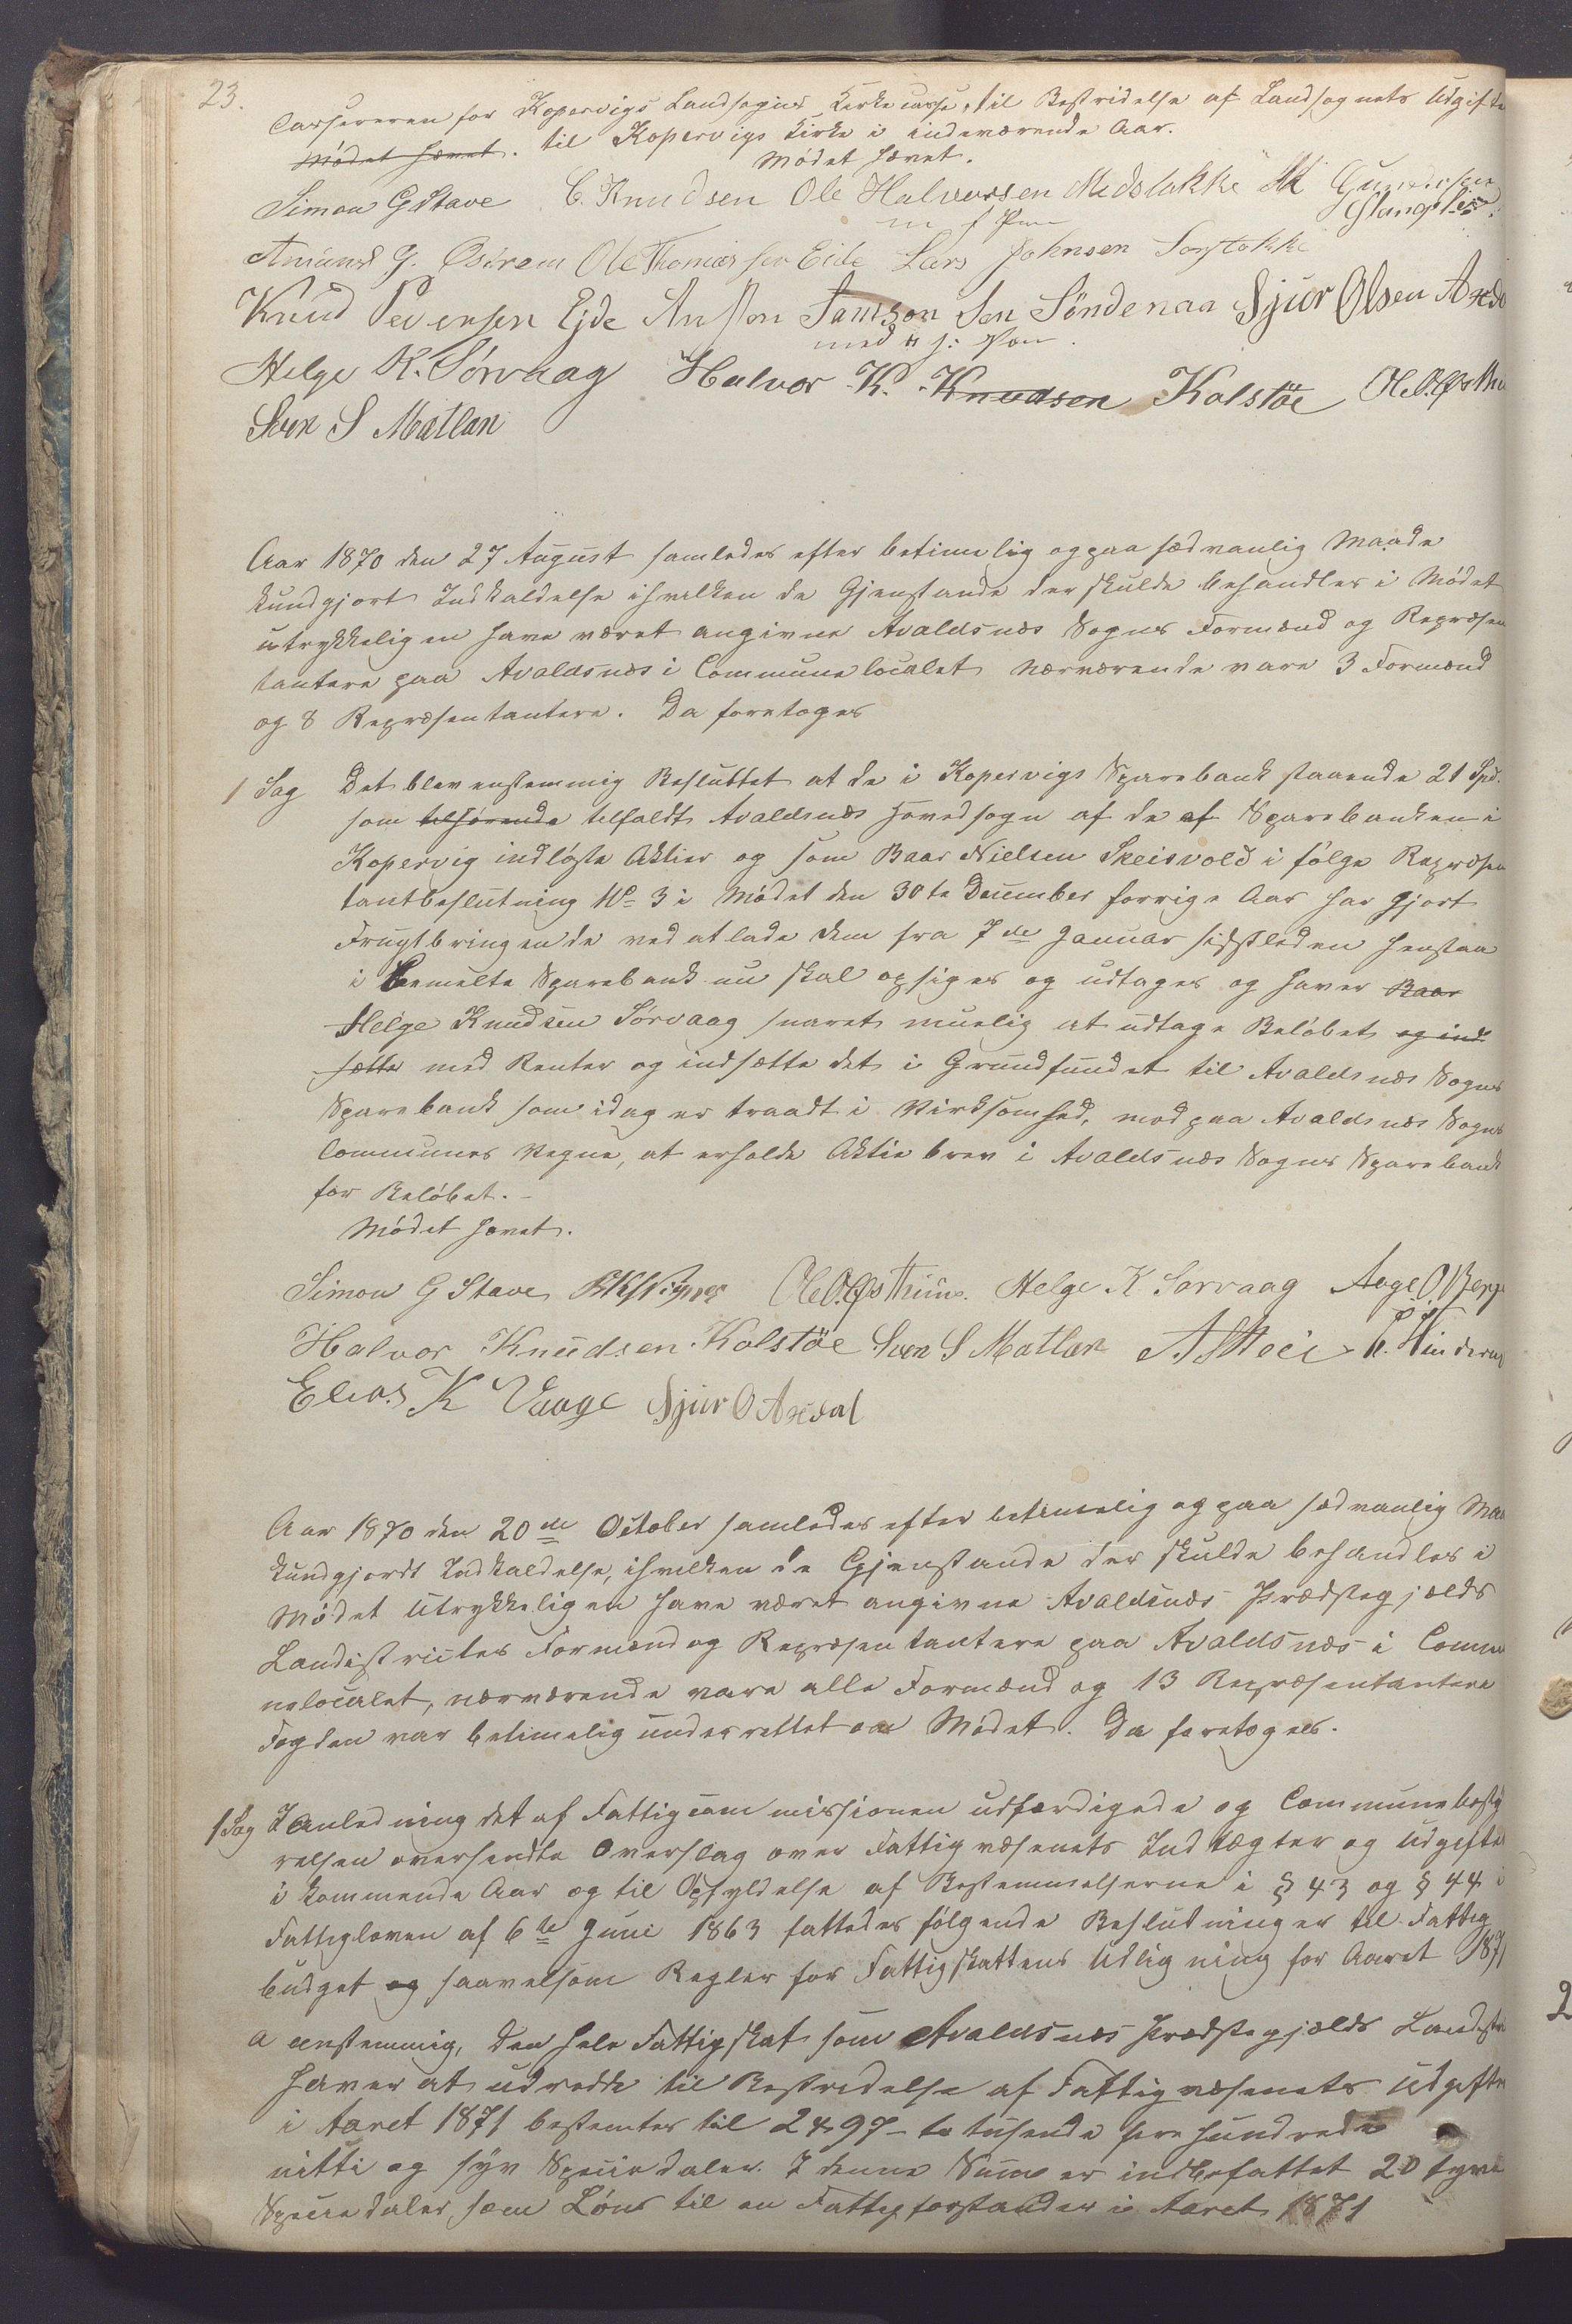 23.
Cassereren for Kopervigs Landsogns Kirkecasse, til Bestridelse af Landsognets Udgifte
Mødet hævet. til Kopervigs Kirke i indeværende Aar.
Mødet hævet.
Simon G Stave C. Knudsen Ole Halvorsen Medstokke M Gundersen
Stangeland
Amund G. Østrem Ole Thomassen Eide Lars Johnsen Sorstokke
m f Pen
Knud Pedersen Eide Ansten Samson Sen Søndenaa Sjur Olsen Axdal
med f: Pen.
Helge K. Sørvaag Halvor K. Knudsen Kolstöe
Sven S Matlan
Aar 1870 den 27 August samledes efter betimelig og paa sædvanlig Maade
kundgjort Indkaldelse i hvilken de Gjenstande der skulde behandles i Mødet
utrykkeligen have været angivne Avaldsnæs Sogns Formænd og Repræsen
tantere paa Avaldsnæs i Communelocalet nærværende vare 3 Formænd
og 8 Repræsentantere. Da foretoges
1 Sag Det blev enstemmig Besluttet at de i Kopervigs Sparebank staaende 21 Spd.
som tilhørende tilfaldt Avaldsnæs Hovedsogn af de af Sparebanken i
Kopervig indløste Aktier og som Baar Nielsen Skeisvold i følge Repræsen
tantbeslutning No 3 i Mødet den 30te December forrige Aar har gjort
Frugtbringende ved at lade dem fra 7de Januar sidstleden henstaa
i bemelte Sparebank nu skal opsiges og udtages og haver Baar
Helge Knudsen Sørvaag snarest muelig at udtage Beløbet og ind
sætte med Renter og indsætte det i Grundfundet til Avaldsnæs Sogns
Sparebank som idag er traadt i Virksomhed, mod paa Avaldsnæs Sogns
Communes Vegne, at erholde Aktiebrev i Avaldsnæs Sogns Sparebank
for Beløbet. -
Mødet hævet.
Simon G Stave Helge K Sørvaag Aoge O Berge
Halvor Knudsen Kolstöe Sven S Matlan
Elias K Vaage Sjur O Axdal
Aar 1870 den 20de October samledes efter betimelig og paa sædvanlig Maa
kundgjordt Indkaldelse, i hvilken de Gjenstande der skulde behandles i
Mødet utrykkeligen have været angivne Avaldsnæs Prædstegjælds
Landistrictes Formænd og Repræsentantere paa Avaldsnæs i Commu
nelocalet, nærværende vare alle Formænd og 13 Repræsentantere
Fogden var betimelig underrettet om Mødet. Da foretoges.
1 Sag I Anledning det af Fattigcommissionen udfærdigede og Communebesty
relsen oversendte Overslag over Fattigvæsenets Indtægter og Udgifter
i kommende Aar og til Opfyldelse af Bestemmelserne i § 43 og § 44 i
Fattigloven af 6te Juni 1863 fattedes følgende Beslutninger til Fattig
budget og saavelsom Regler for Fattigskattens Udligning for Aaret 1871
a enstemmig, den hele Fattigskat som Avaldsnæs Prædstegjælds Landistr
haver at udredde til Bestridelse af Fattigvæsenets Udgifter
i Aaret 1871 bestemtes til 2497 - to tusende fire hundrede
nitti og syv Speciedaler. I denne Summa er indbefattet 20 tyve
Speciedaler som Løns til en Fattigforstander i Aaret 1871